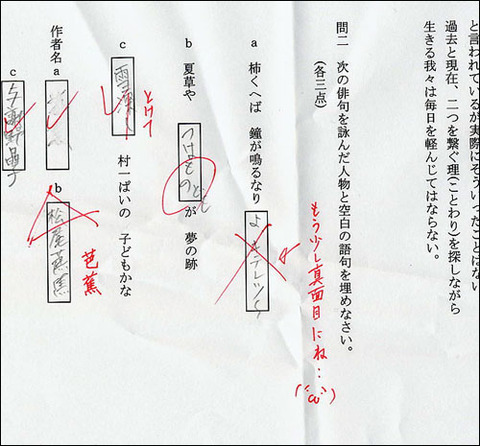 と言われているが実際にそういったことはない
過去と現在、二つを繋ぐ理(ことわり)を探しながら
生きる我々は毎日を軽んじてはならない。
問二 次の俳句を詠んだ人物と空白の語句を埋めなさい。
(各三点)
もう少し真面目にね‥
a 柿くへば 鐘が鳴るなり
b 夏草や が 夢の跡
とけて
c 村一ぱいの 子どもかな
作者名 a
b 松尾芭蕉
芭蕉
c 与謝野晶子